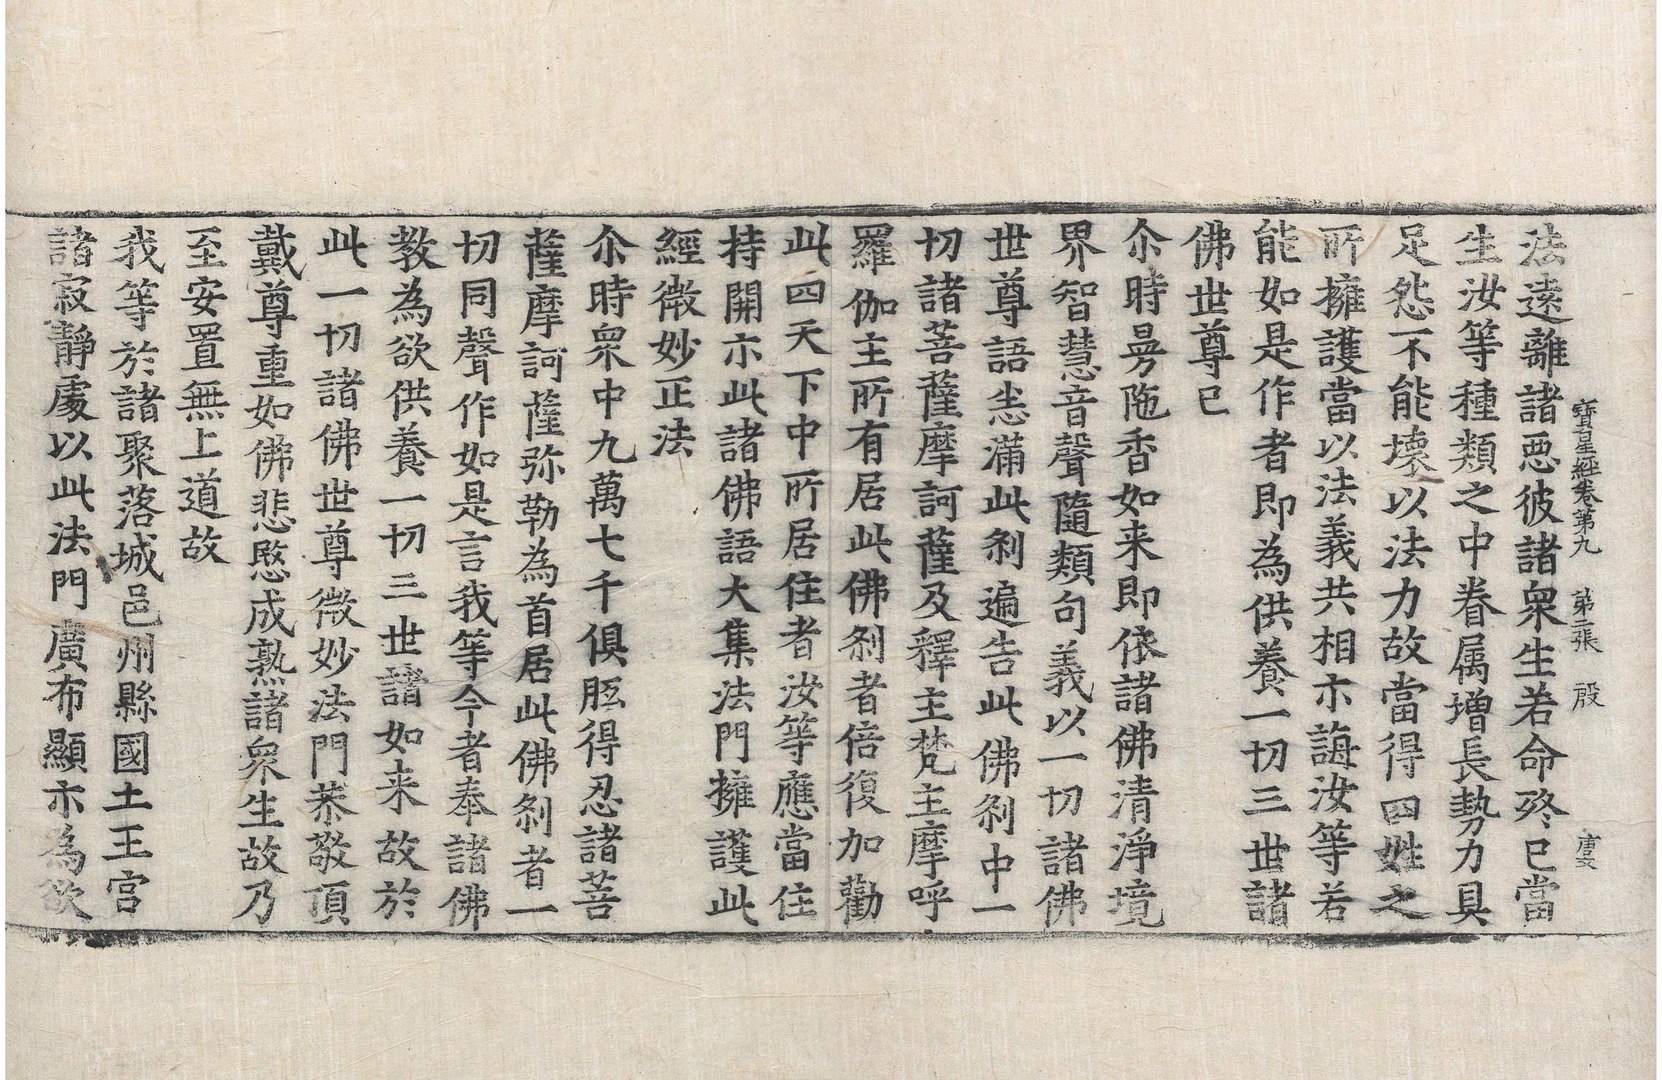 法遠離諸惡彼諸衆生若命終已當
寶星經卷第九 第二張 殷
生汝等種類之中眷属增長勢力具
足怨不能壞以法力故當得四姓之
所擁護當以法義共相示誨汝等若
能如是作者即為供養一切三世諸
佛世尊已
尒時曼陁香如来即依諸佛清淨境
界智慧音聲隨類句義以一切諸佛
世尊語悉滿此刹遍告此佛刹中一
切諸菩薩摩訶薩及釋主梵主摩呼
羅伽主所有居此佛刹者倍復加勸
此四天下中所居住者汝等應當住
持開示此諸佛語大集法門擁護此
經微妙正法
尒時衆中九萬七千俱胝得忍諸菩
薩摩訶薩弥勒為首居此佛刹者一
切同聲作如是言我等今者奉諸佛
教為欲供養一切三世諸如来故於
此一切諸佛世尊微妙法門恭敬頂
戴尊重如佛悲愍成熟諸衆生故乃
至安置無上道故
我等於諸聚落城邑州縣國土王宫
諸寂靜處以此法門廣布顯示為欲